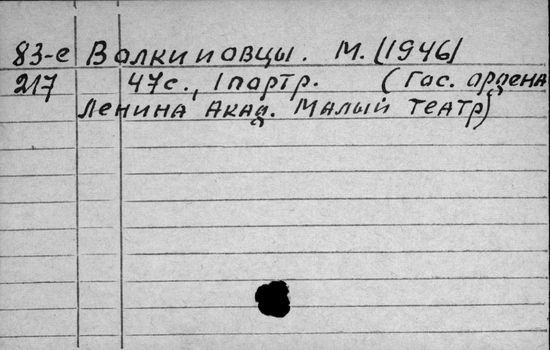 83-е Валки и овцы. М. (1946)
217 47с., 1 портр. (Гос. ордена
Ленина Акад. Малый театр)